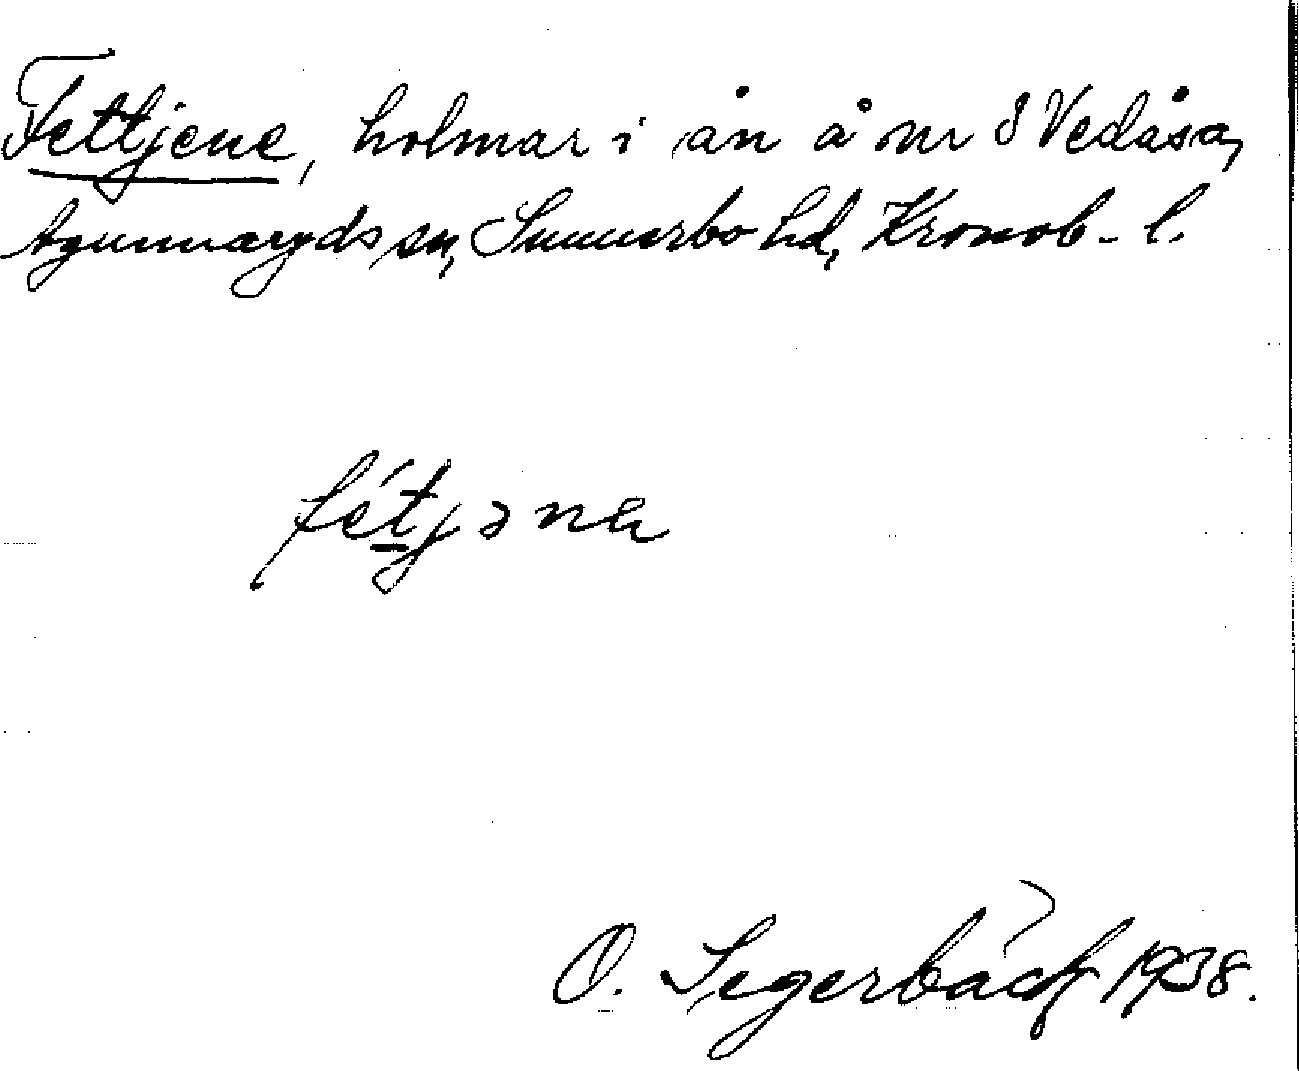 Fettjene, holmar i ån å nr 8 Vedåsa,
Agunnaryds sn, Sunnerbo hd, Kronob. l.
fétjəna
O. Segerbäck 1938.